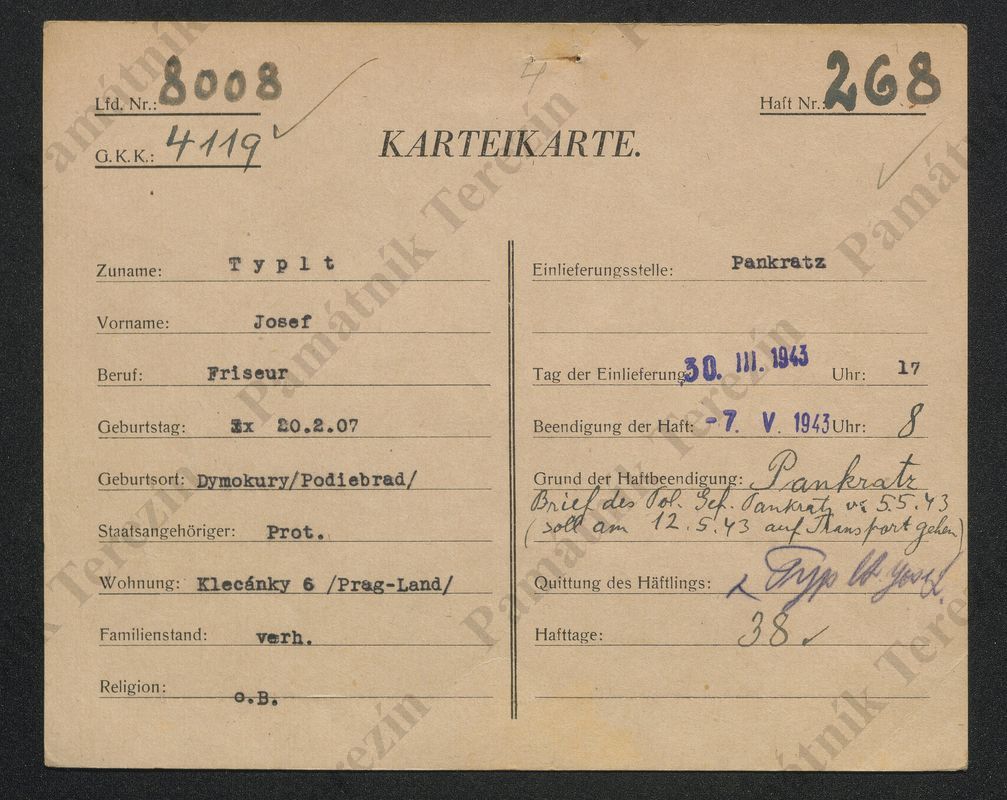 Lfd. Nr.: 8008
Haft Nr.: 268
G.K.K.: 4119
4
KARTEIKARTE.
Zuname: Typlt
Vorname: Josef
Beruf: Friseur
Geburtstag: 20.2.07
Geburtsort: Dymokury/Podiebrad/
Staatsangehöriger: Prot.
Wohnung: Klecánky 6 /Prag-Land/
Familienstand: verh.
Religion: o.B.
Einlieferungsstelle: Pankratz
Tag der Einlieferung: 30. III. 1943 Uhr: 17
Beendigung der Haft: -7. V. 1943 Uhr: 8
Grund der Haftbeendigung: Pankratz
Brief des Pol. Gef. Pankratz v. 5.5.43
(soll am 12.5.43 auf Transport gehen)
Quittung des Häftlings: Typlt Josef.
Hafttage: 38
Památník Terezín
Památník Terezín
Památník Terezín
Památník Terezín